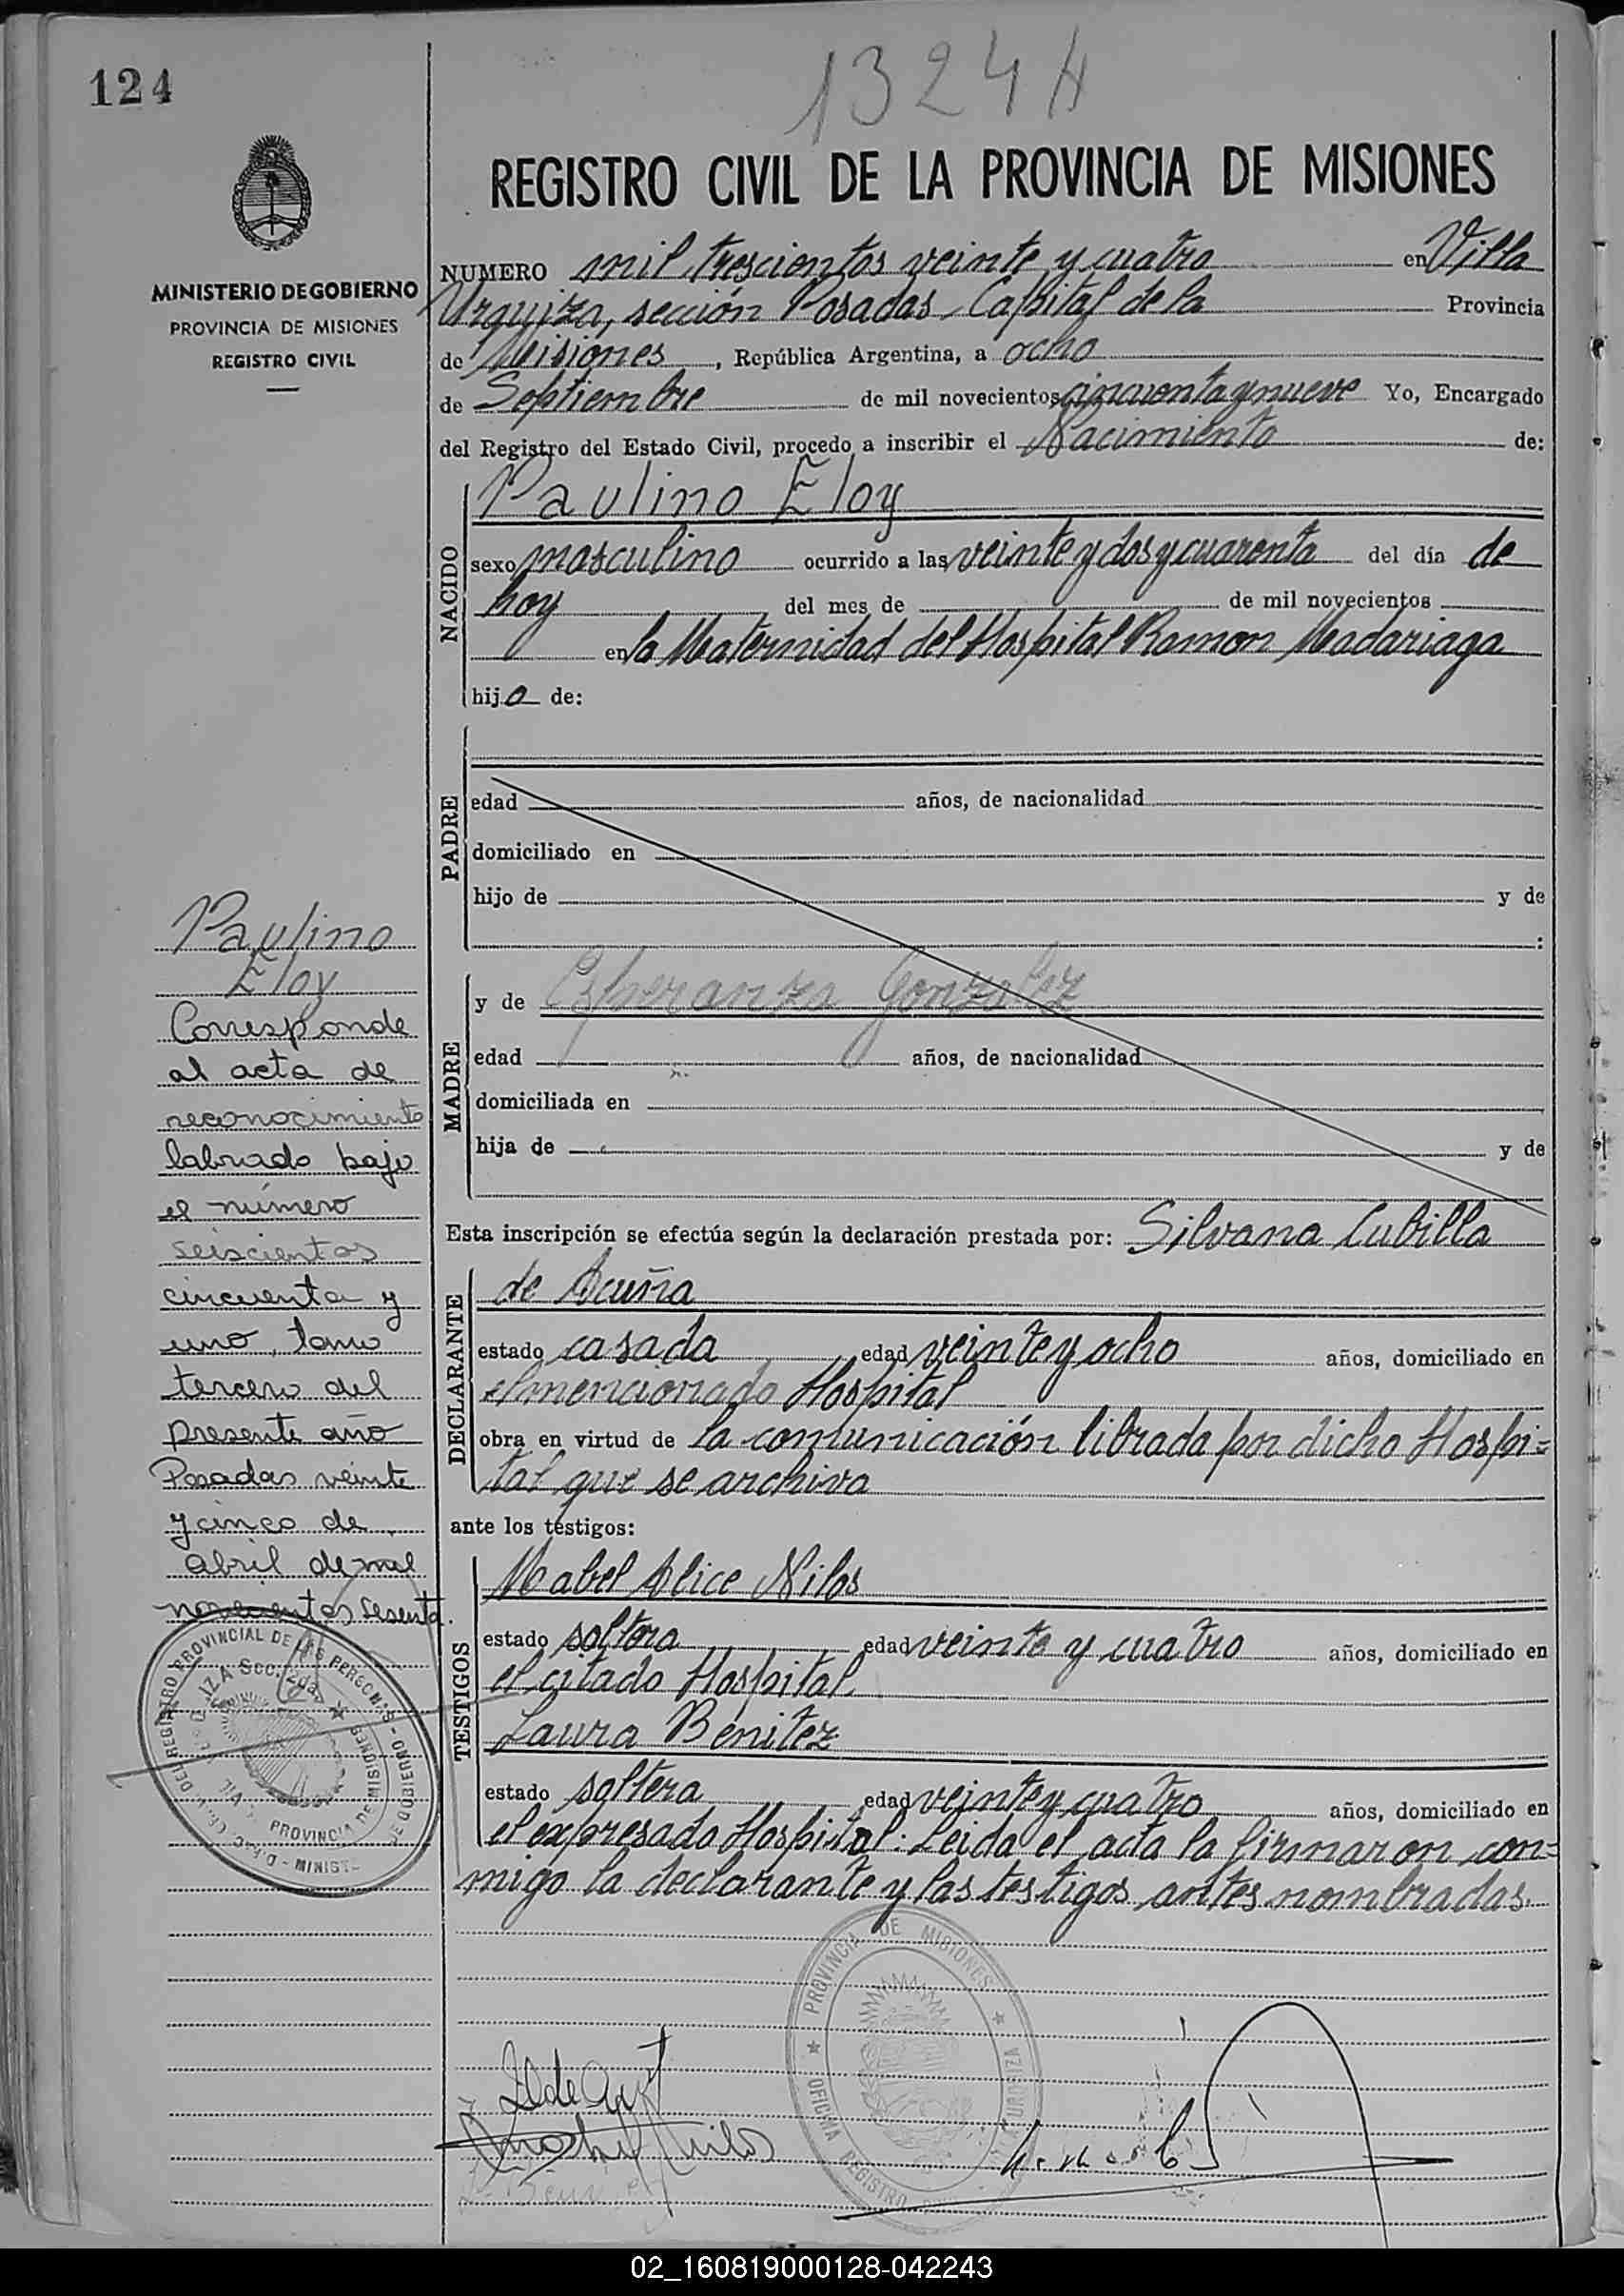 124
1324 H
REGISTRO CIVIL DE LA PROVINCIA DE MISIONES
MINISTERIO DE GOBIERNO
PROVINCIA DE MISIONES
REGISTRO CIVIL
NUMERO mil trescientos veinte y cuatro en Villa
Urquiza, sección Posadas, Capital de la Provincia
de Misiones, República Argentina, a ocho
de Septiembre de mil novecientos cincuenta y nueve Yo, Encargado
del Registro del Estado Civil, procedo a inscribir el Nacimiento de:
NACIDO
Paulino Eloy
sexo masculino ocurrido a las veinte y dos y cuarenta del día de
hoy del mes de de mil novecientos
en la Maternidad del Hospital Ramon Madariaga
hijo de:
PADRE
edad años, de nacionalidad
domiciliado en
hijo de y de
:
MADRE
y de Esperanza Gonzalez
edad años, de nacionalidad
domiciliada en
hija de y de
Esta inscripción se efectúa según la declaración prestada por: Silvana Cubilla
DECLARANTE
de Acuña
estado casada edad veinte y ocho años, domiciliado en
el mencionado Hospital
obra en virtud de la comunicación librada por dicho Hospi=
tal que se archiva
ante los testigos:
TESTIGOS
Mabel Alice Nilos
estado soltera edad veinte y cuatro años, domiciliado en
el citado Hospital
Laura Benitez
estado soltera edad veinte y cuatro años, domiciliado en
el expresado Hospital: Leida el acta la firmaron con=
migo la declarante y las testigos antes nombradas.
Paulino
Eloy
Corresponde
al acta de
reconocimiento
labrado bajo
el número
seiscientos
cincuenta y
uno, tomo
tercero del
presente año
Posadas veinte
y cinco de
abril de mil
novecientos sesenta.
REGISTRO PROVINCIAL DE LAS PERSONAS
PROVINCIA DE MISIONES
PROVINCIA DE MISIONES
OFICINA REGISTRO
URQUIZA
02_160819000128-042243